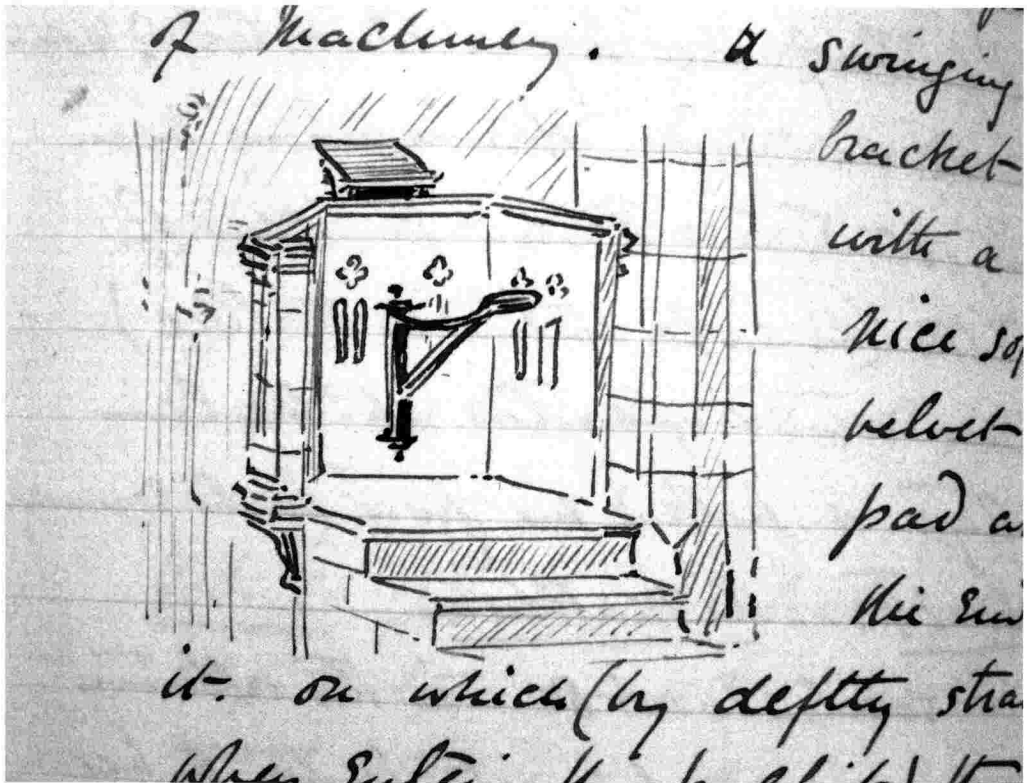 of Machinery. A swinging
bracket
with a
nice so
velvet
pad a
the End
it. on which (by deftly stra
when